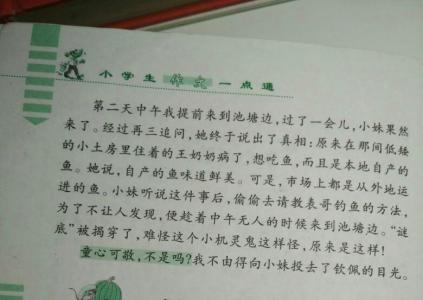 小学生作文一点通
第二天中午我提前来到池塘边，过了一会儿，小妹果然
来了。经过再三追问，她终于说出了真相：原来在那间低矮
的小土房里住着的王奶奶病了，想吃鱼，而且是本地自产的
鱼。她说，自产的鱼味道鲜美。可是，市场上都是从外地运
进的鱼。小妹听说这件事后，偷偷去请教表哥钓鱼的方法，
为了不让人发现，便趁着中午无人的时候来到池塘边。“谜
底”被揭穿了，难怪这个小机灵鬼这样怪，原来是这样！
童心可敬，不是吗？我不由得向小妹投去了钦佩的目光。